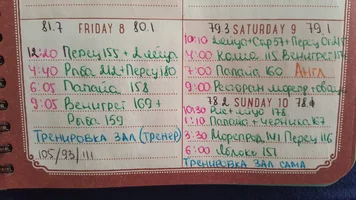 81.7 FRIDAY 8 80.1
12:20 Перец 155 + 2 яйца
4:40 Рыба 212 + Перец 180
6:05 Папайа 158
9:05 Венигрет 169 +
Рыба 159
ТРЕНИРОВКА ЗАЛ (ТРЕНЕР)
105/93/111
79.3 SATURDAY 9 79.1
10:10 2 яйца + Сыр 57 + Перец
4:00 115 Венигрет
7:00 Папайа 160 Англ
9:00 Ресторан
78.2 SUNDAY 10 78.
10:30 + яйцо 178
1:10 Папайа + Черника 167
3:30 Морепрод 141 Перец 116
6:00 Яблоко 151
ТРЕНИРОВКА ЗАЛ САМА